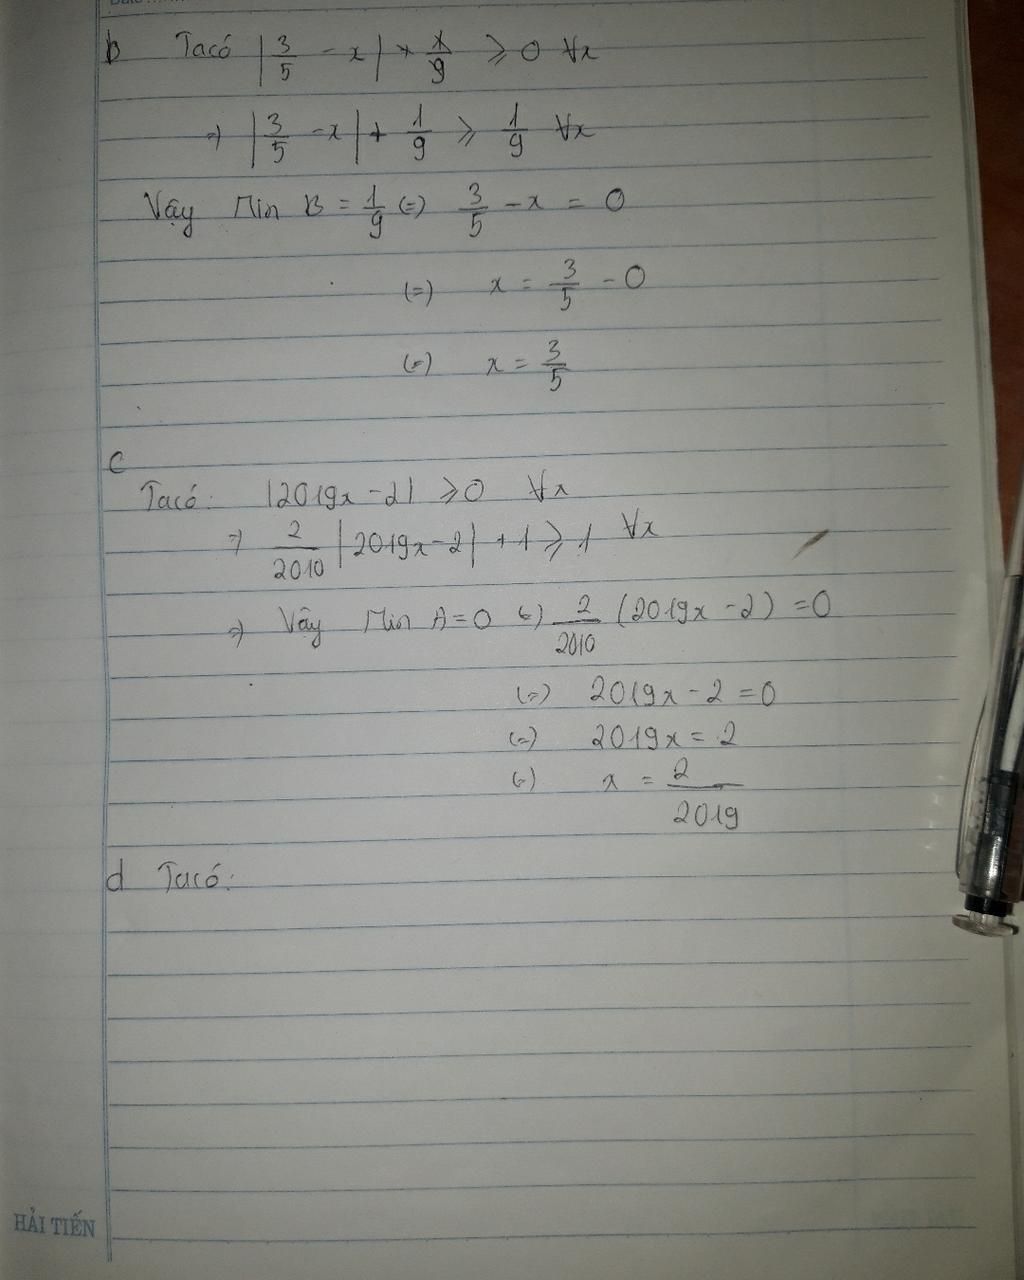 b Ta có |3/5 - x| + 1/9 ⩾ 0 ∀x
=> |3/5 - x| + 1/9 ⩾ 1/9 ∀x
Vậy Min B = 1/9 (=) 3/5 - x = 0
(=) x = 3/5 - 0
(=) x = 3/5
c
Ta có: |2019x - 2| ⩾ 0 ∀x
=> 2/2010 |2019x - 2| + 1 ⩾ 1 ∀x
=> Vây Min A = 0 (=) 2/2010 (2019x - 2) = 0
(=) 2019x - 2 = 0
(=) 2019x = 2
(=) x = 2/2019
d Ta có:
HẢI TIẾN